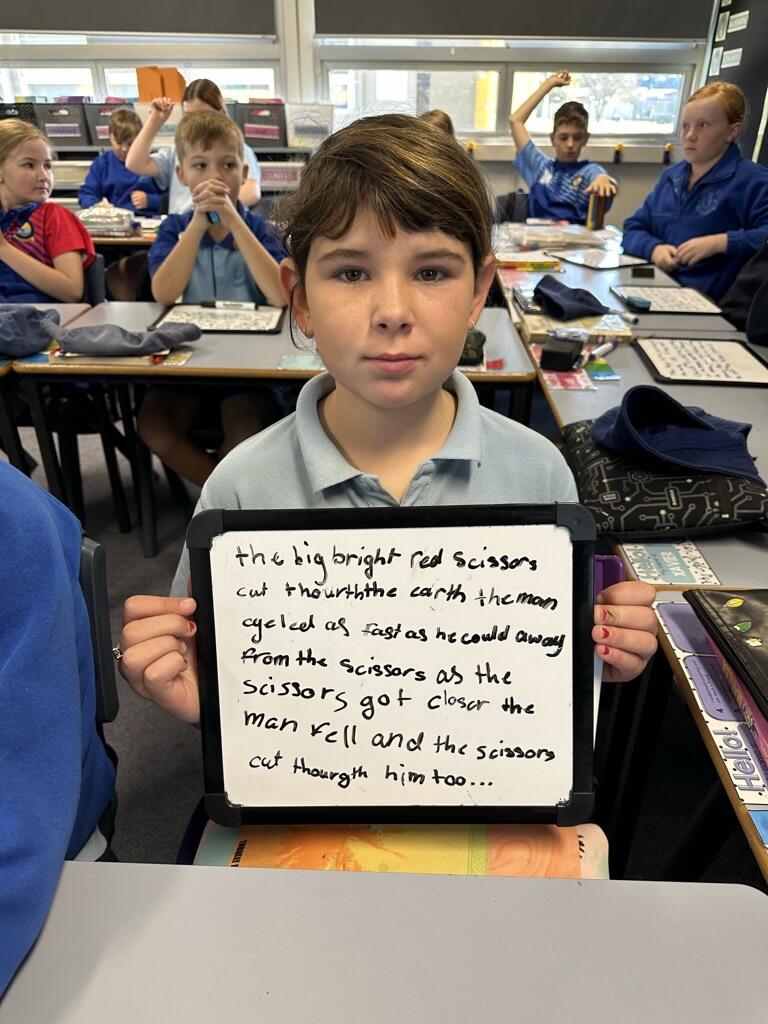 the big bright red scissors
cut thourththe earth the man
cycled as fast as he could away
from the scissors as the
scissors got closer the
man fell and the scissors
cut thourgth him too...
Hello!